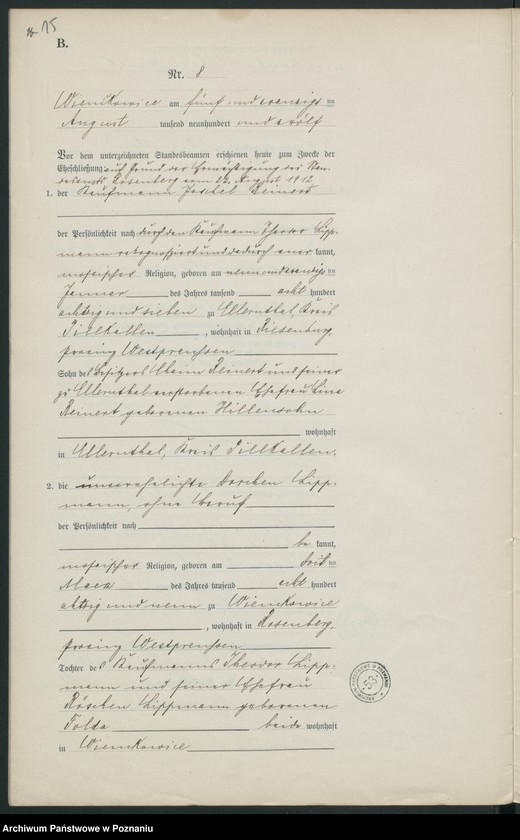 15
B.
Nr. 8
Wienskowice am fünf und zwanzigs ten
August tausend neunhundert und zwölf
Vor dem unterzeichneten Standesbeamten erschienen heute zum Zwecke der
Eheschließung auf Grund der Ermächtigung des Stan-
desamts Rosenberg vom 22. August 1912
1. der Kaufmann Joschel Reinert
der Persönlichkeit nach durch den Kaufmann Theodor Lipp-
mann rekognosziert und dadurch aner kannt,
mosaischer Religion, geboren am neun und zwanzigs ten
Januar des Jahres tausend acht hundert
achtzig und sieben zu Ellernthal, Kreis
Pillkallen, wohnhaft in Riesenburg,
Provinz Westpreußen
Sohn des Besitzers Chaim Reinert und seiner
zu Ellernthal verstorbenen Ehefrau Lina
Reinert geborenen Hillensohn
wohnhaft
in Ellernthal, Kreis Pillkallen.
2. die unverehelichte Dorchen Lipp-
mann, ohne Beruf
der Persönlichkeit nach
be kannt,
mosaischer Religion, geboren am drit ten
März des Jahres tausend acht hundert
achtzig und neun zu Wienskowice
, wohnhaft in Rosenberg,
Provinz Westpreussen
Tochter des Kaufmanns Theodor Lipp-
mann und seiner Ehefrau
Röschen Lippmann geborenen
beide wohnhaft
in Wienskowice
53
Archiwum Państwowe w Poznaniu